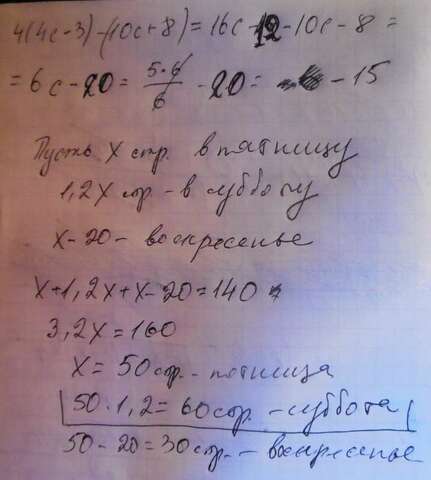 4(4c-3)-(10c+8)=16c-12-10c-8=
=6c-20=5·6/6-20= -15
Пусть x стр. в пятницу
1,2x стр - в субботу
x-20- воскресенье
x+1,2x+x-20=140
3,2x=160
x=50стр.-пятница
50·1,2=60стр.-суббота
50-20=30стр.-воскресенье